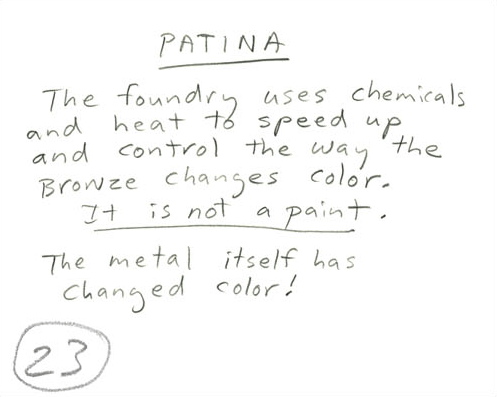 PATINA
The foundry uses chemicals
and heat to speed up
and control the way the
Bronze changes color.
It is not a paint.
The metal itself has
changed color!
23